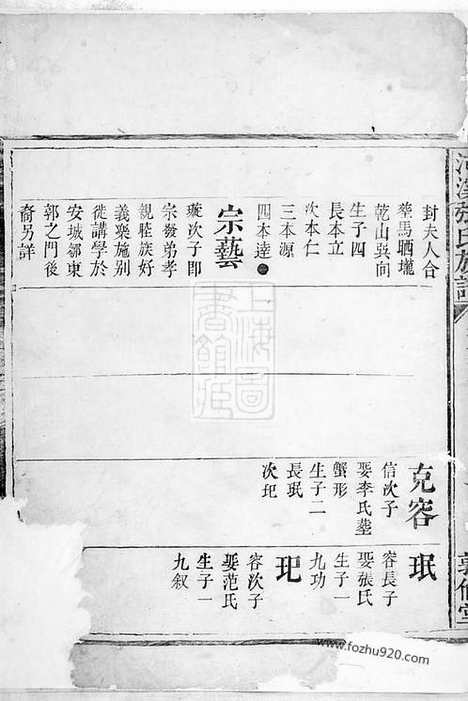 封夫人合
塟馬晒壠
乾山㢲向
生子四
長本立
次本仁
三本源
四本逵
宗藝
璇次子即
宗發弟孝
親睦族好
義樂施别
徙講學於
安城鄒東
郭之門後
裔另詳
克容
信次子
娶李氏塟
蟹形
生子二
長珉
次玘
珉
容長子
娶張氏
生子一
九功
玘
容次子
娶范氏
生子一
九叙
氏族譜
敦倫堂
上海圖
書館藏
www.fozhu920.com